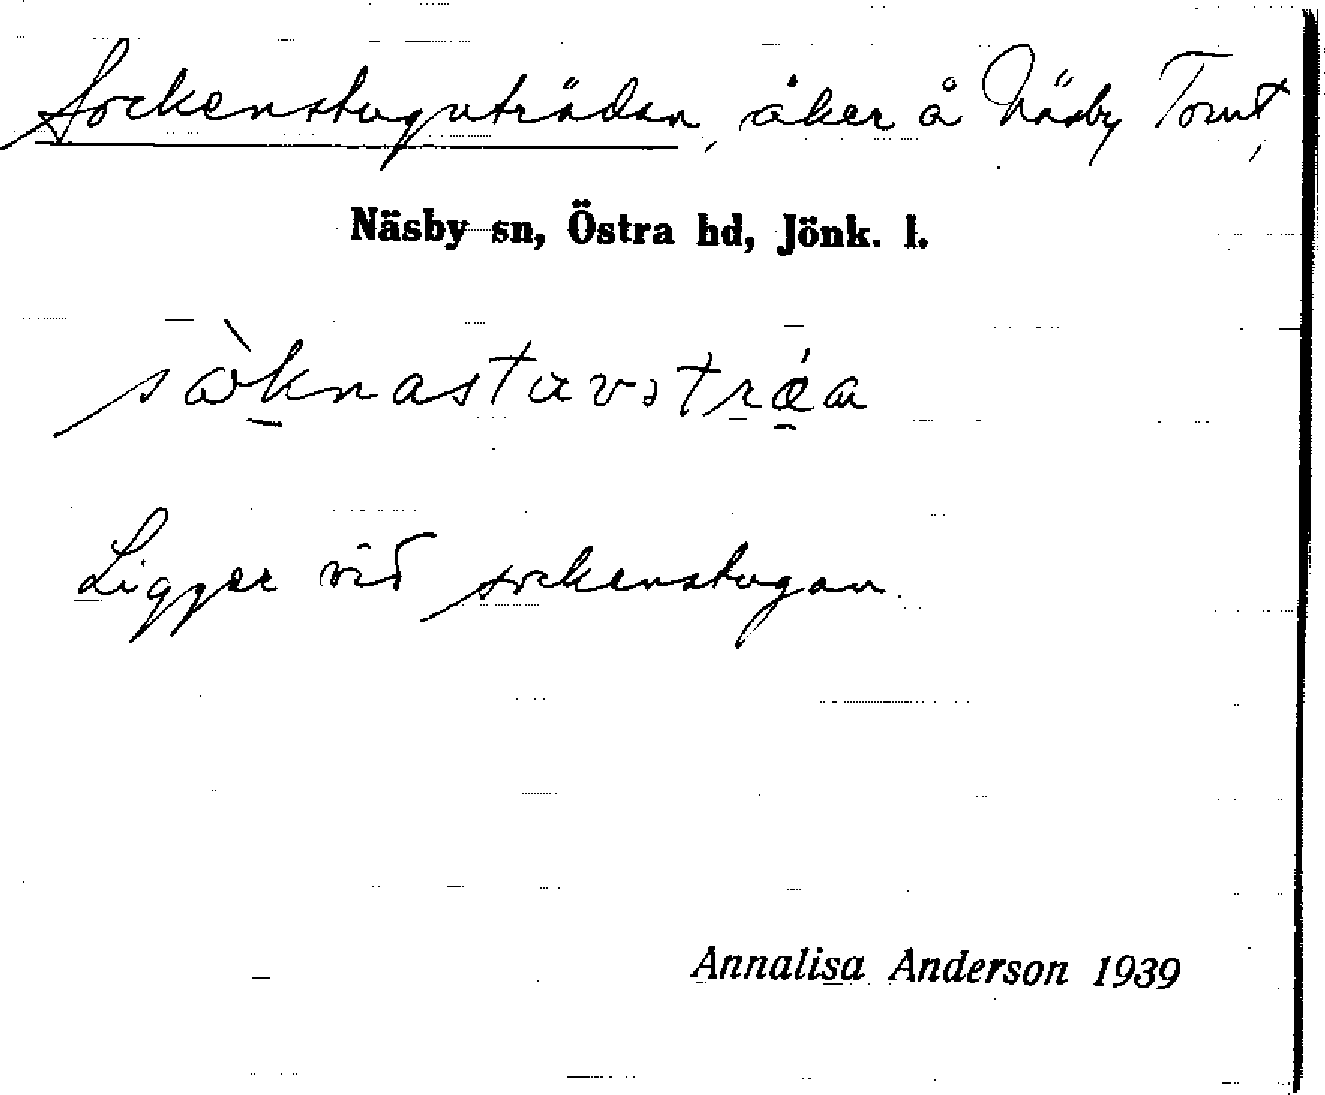 Sockenstuguträdan, åker å Näsby Tomt,
Näsby sn, Östra hd, Jönk. l.
Ligger vid sockenstugan.
Annalisa Anderson 1939